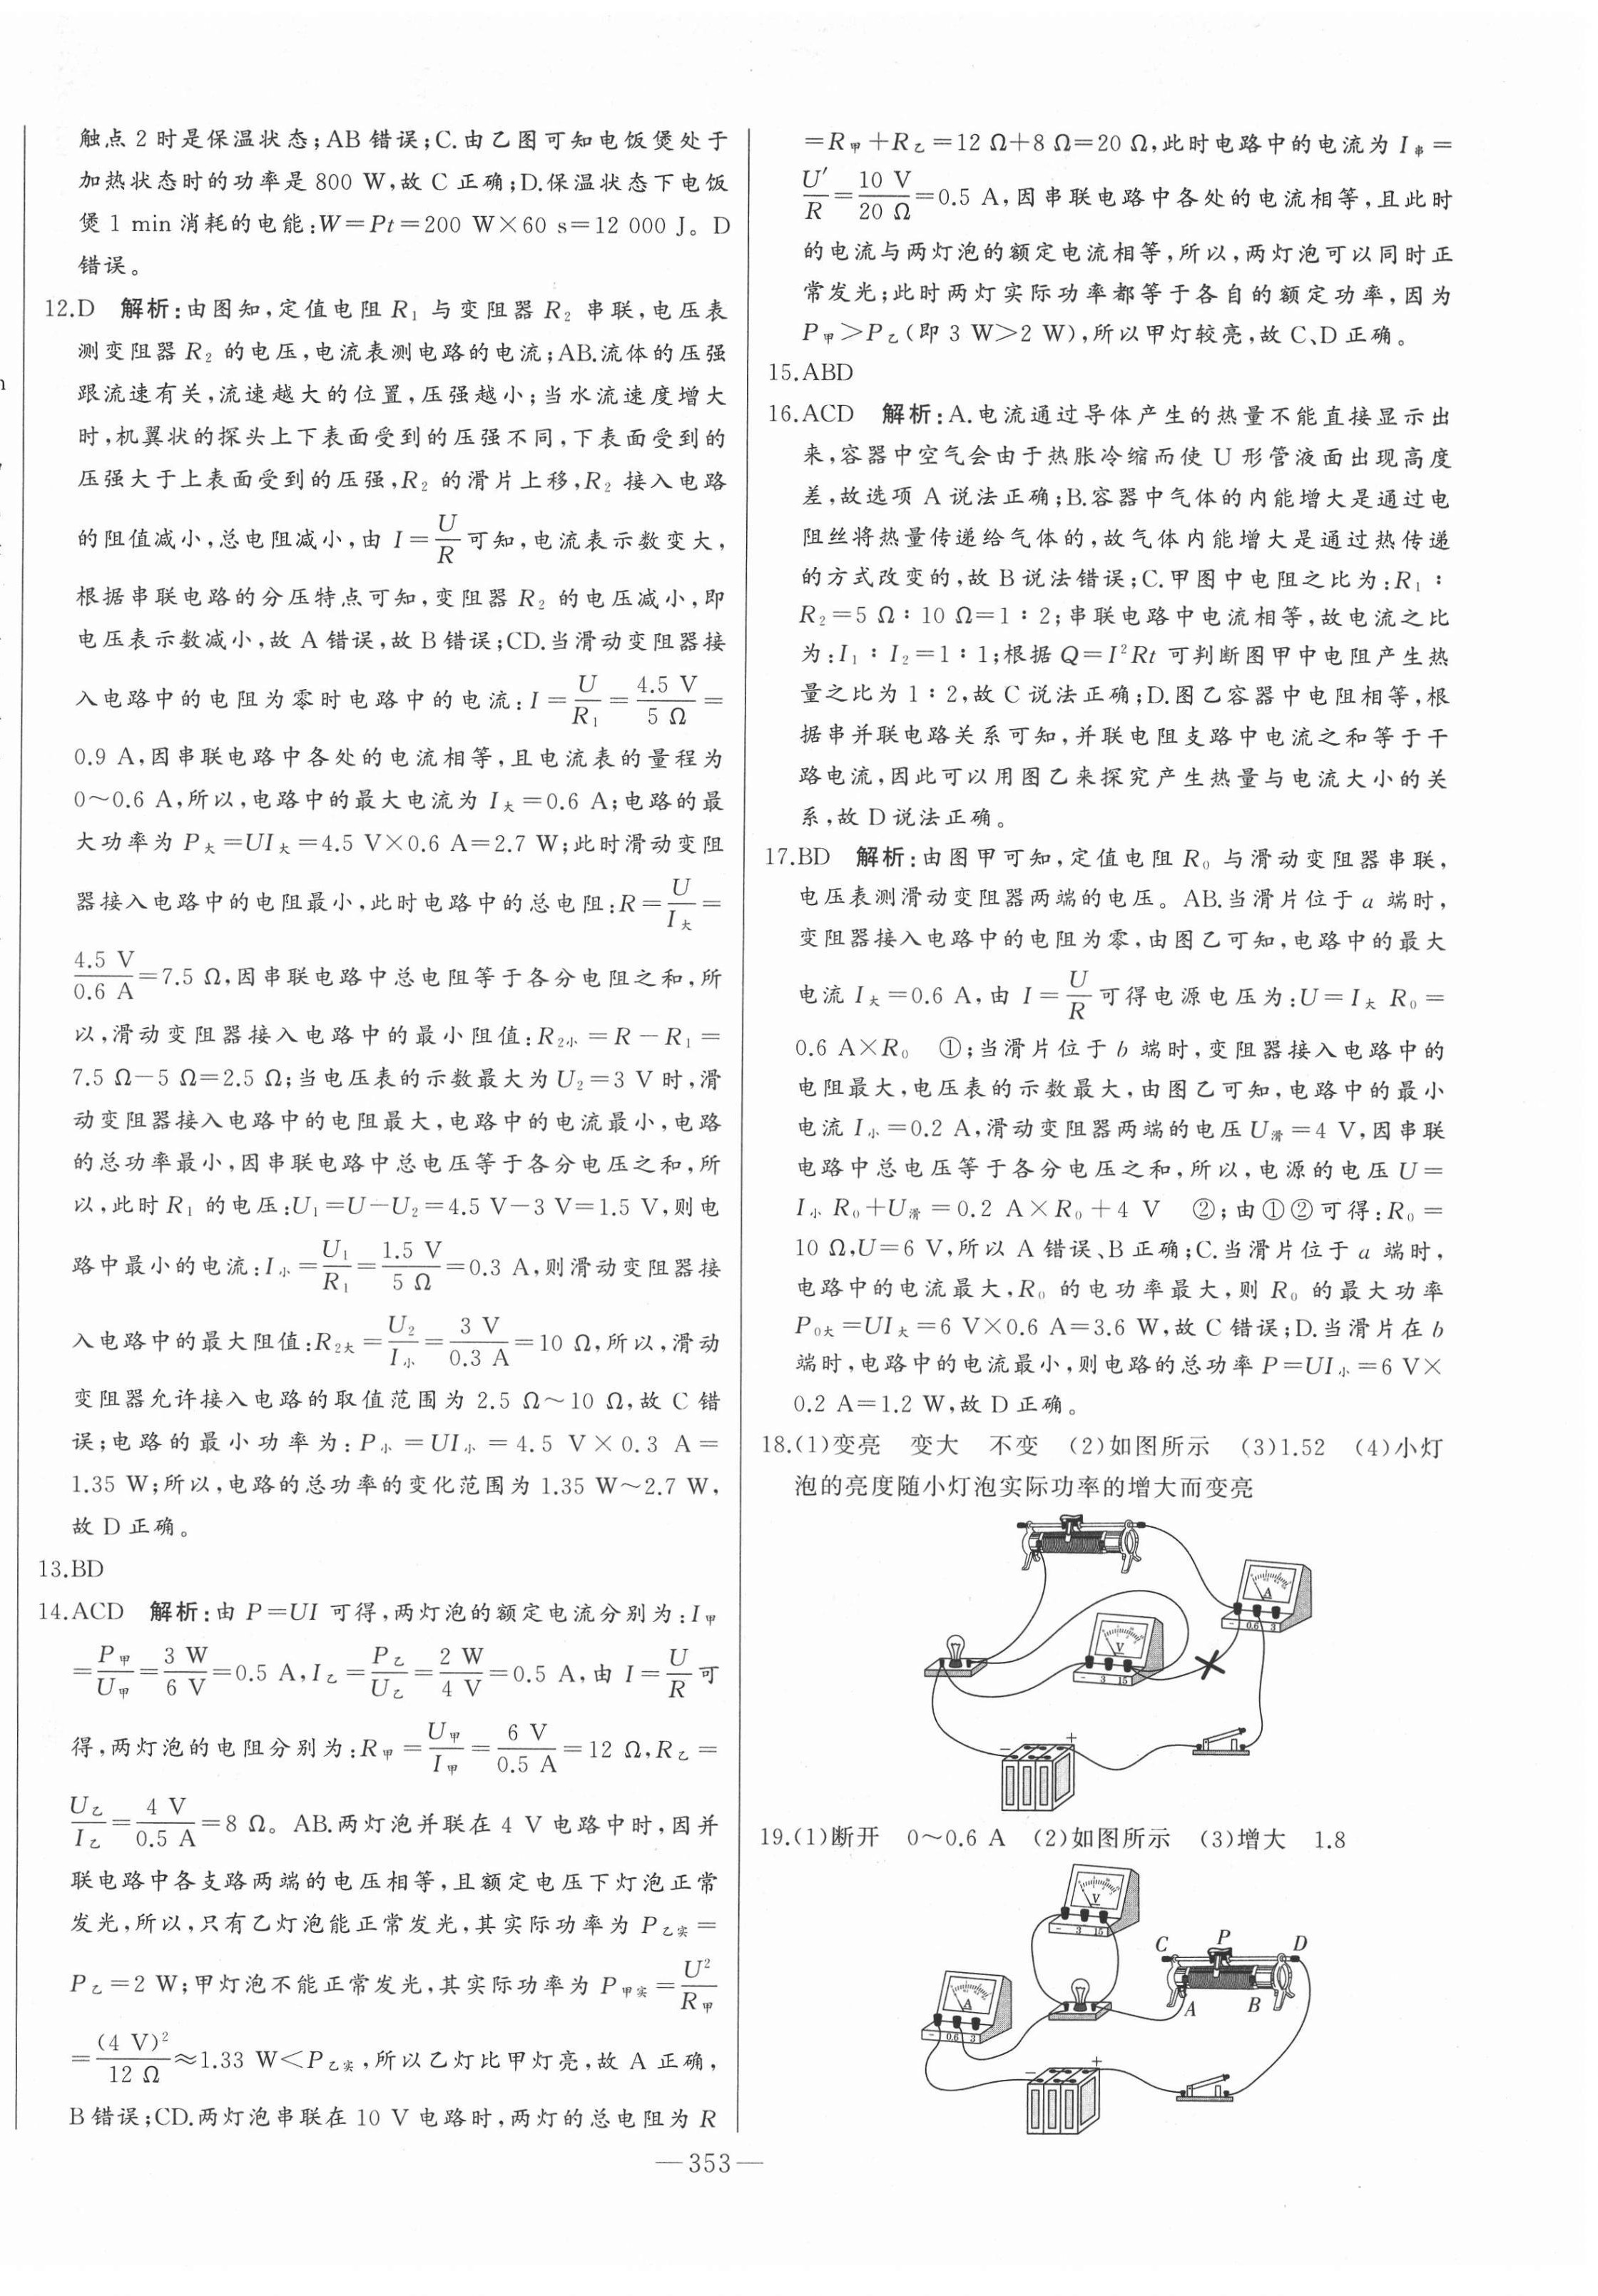 触点 2 时是保温状态;AB 错误;C.由乙图可知电饭煲处于
加热状态时的功率是 800 W,故 C 正确;D.保温状态下电饭
煲 1 min 消耗的电能:W=Pt=200 W×60 s=12 000 J。D
错误。
12.D 解析:由图知,定值电阻 R₁ 与变阻器 R₂ 串联,电压表
测变阻器 R₂ 的电压,电流表测电路的电流;AB.流体的压强
跟流速有关,流速越大的位置,压强越小;当水流速度增大
时,机翼状的探头上下表面受到的压强不同,下表面受到的
压强大于上表面受到的压强,R₂ 的滑片上移,R₂ 接入电路
的阻值减小,总电阻减小,由 I=U/R 可知,电流表示数变大,
根据串联电路的分压特点可知,变阻器 R₂ 的电压减小,即
电压表示数减小,故 A 错误,故 B 错误;CD.当滑动变阻器接
入电路中的电阻为零时电路中的电流:I=U/R₁=4.5 V/5 Ω=
0.9 A,因串联电路中各处的电流相等,且电流表的量程为
0~0.6 A,所以,电路中的最大电流为 I大=0.6 A;电路的最
大功率为 P大=UI大=4.5 V×0.6 A=2.7 W;此时滑动变阻
器接入电路中的电阻最小,此时电路中的总电阻:R=U/I大=
4.5 V/0.6 A=7.5 Ω,因串联电路中总电阻等于各分电阻之和,所
以,滑动变阻器接入电路中的最小阻值:R₂小=R-R₁=
7.5 Ω-5 Ω=2.5 Ω;当电压表的示数最大为 U₂=3 V 时,滑
动变阻器接入电路中的电阻最大,电路中的电流最小,电路
的总功率最小,因串联电路中总电压等于各分电压之和,所
以,此时 R₁ 的电压:U₁=U-U₂=4.5 V-3 V=1.5 V,则电
路中最小的电流:I小=U₁/R₁=1.5 V/5 Ω=0.3 A,则滑动变阻器接
入电路中的最大阻值:R₂大=U₂/I小=3 V/0.3 A=10 Ω,所以,滑动
变阻器允许接入电路的取值范围为 2.5 Ω~10 Ω,故 C 错
误;电路的最小功率为:P小=UI小=4.5 V×0.3 A=
1.35 W;所以,电路的总功率的变化范围为 1.35 W~2.7 W,
故 D 正确。
13.BD
14.ACD 解析:由 P=UI 可得,两灯泡的额定电流分别为:I甲
=P甲/U甲=3 W/6 V=0.5 A,I乙=P乙/U乙=2 W/4 V=0.5 A,由 I=U/R 可
得,两灯泡的电阻分别为:R甲=U甲/I甲=6 V/0.5 A=12 Ω,R乙=
U乙/I乙=4 V/0.5 A=8 Ω。AB.两灯泡并联在 4 V 电路中时,因并
联电路中各支路两端的电压相等,且额定电压下灯泡正常
发光,所以,只有乙灯泡能正常发光,其实际功率为 P乙实=
P乙=2 W;甲灯泡不能正常发光,其实际功率为 P甲实=U²/R甲
=(4 V)²/12 Ω≈1.33 W<P乙实,所以乙灯比甲灯亮,故 A 正确,
B 错误;CD.两灯泡串联在 10 V 电路时,两灯的总电阻为 R
=R甲+R乙=12 Ω+8 Ω=20 Ω,此时电路中的电流为 I串=
U′/R=10 V/20 Ω=0.5 A,因串联电路中各处的电流相等,且此时
的电流与两灯泡的额定电流相等,所以,两灯泡可以同时正
常发光;此时两灯实际功率都等于各自的额定功率,因为
P甲>P乙(即 3 W>2 W),所以甲灯较亮,故 C、D 正确。
15.ABD
16.ACD 解析:A.电流通过导体产生的热量不能直接显示出
来,容器中空气会由于热胀冷缩而使 U 形管液面出现高度
差,故选项 A 说法正确;B.容器中气体的内能增大是通过电
阻丝将热量传递给气体的,故气体内能增大是通过热传递
的方式改变的,故 B 说法错误;C.甲图中电阻之比为:R₁∶
R₂=5 Ω∶10 Ω=1∶2;串联电路中电流相等,故电流之比
为:I₁∶I₂=1∶1;根据 Q=I²Rt 可判断图甲中电阻产生热
量之比为 1∶2,故 C 说法正确;D.图乙容器中电阻相等,根
据串并联电路关系可知,并联电阻支路中电流之和等于干
路电流,因此可以用图乙来探究产生热量与电流大小的关
系,故 D 说法正确。
17.BD 解析:由图甲可知,定值电阻 R₀ 与滑动变阻器串联,
电压表测滑动变阻器两端的电压。AB.当滑片位于 a 端时,
变阻器接入电路中的电阻为零,由图乙可知,电路中的最大
电流 I大=0.6 A,由 I=U/R 可得电源电压为:U=I大 R₀=
0.6 A×R₀ ①;当滑片位于 b 端时,变阻器接入电路中的
电阻最大,电压表的示数最大,由图乙可知,电路中的最小
电流 I小=0.2 A,滑动变阻器两端的电压 U滑=4 V,因串联
电路中总电压等于各分电压之和,所以,电源的电压 U=
I小 R₀+U滑=0.2 A×R₀+4 V ②;由①②可得:R₀=
10 Ω,U=6 V,所以 A 错误、B 正确;C.当滑片位于 a 端时,
电路中的电流最大,R₀ 的电功率最大,则 R₀ 的最大功率
P₀大=UI大=6 V×0.6 A=3.6 W,故 C 错误;D.当滑片在 b
端时,电路中的电流最小,则电路的总功率 P=UI小=6 V×
0.2 A=1.2 W,故 D 正确。
18.(1)变亮 变大 不变 (2)如图所示 (3)1.52 (4)小灯
泡的亮度随小灯泡实际功率的增大而变亮
A
- 0.6 3
V
- 3 15
- +
19.(1)断开 0~0.6 A (2)如图所示 (3)增大 1.8
V
- 3 15
C P D
A B
A
- 0.6 3
- +
—353—